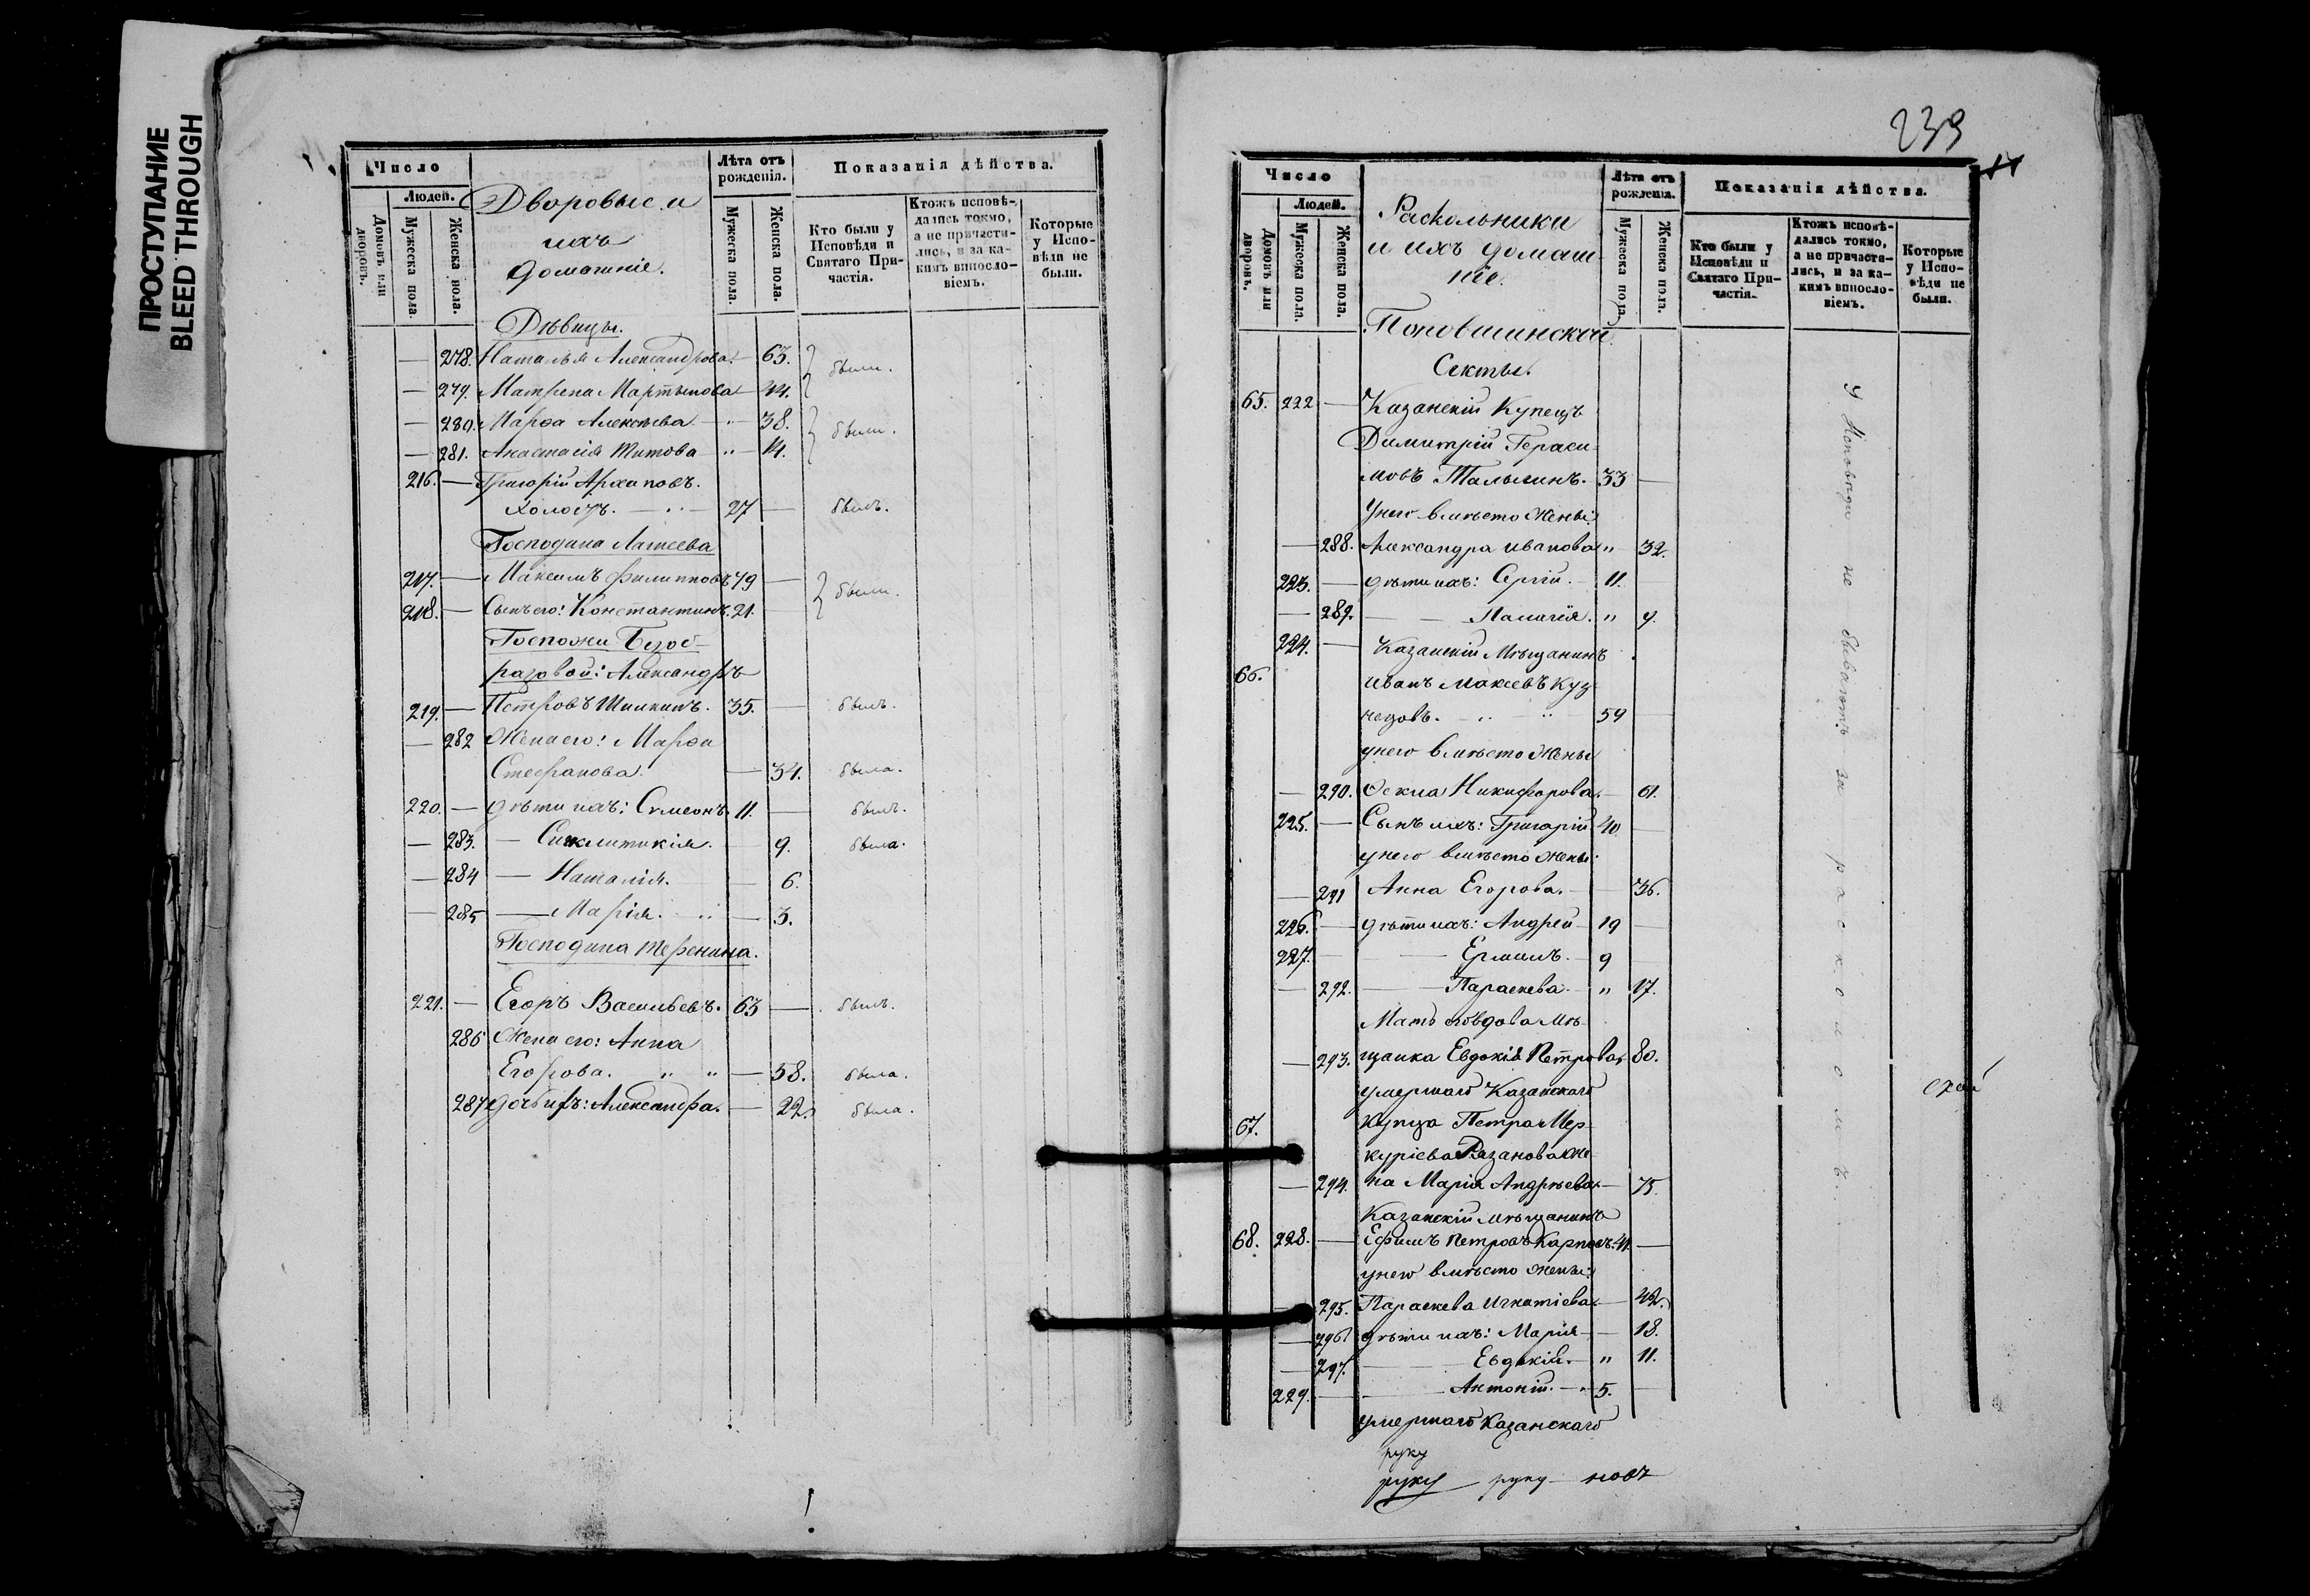 ПРОСТУПАНИЕ
BLEED THROUGH
Число
Людей.
Домовъ или дворовъ.
Мужеска пола.
Женска пола.
Дворовые и
ихъ
домашніе.
Лѣта отъ рожденія.
Мужеска пола.
Женска пола.
Показанія дѣйства.
Кто были у Исповѣди и Святаго Причастія.
Ктожъ исповѣдались токмо, а не причастились, и за какимъ винословіемъ.
Которые у Исповѣди не были.
Дѣвицы.
— 278. Наталья Александрова. 63.
были.
— 279. Матрена Мартынова 44.
— 280. Марѳа Алексѣева — " — 38.
были.
— 281. Анастасія Титова " — 14.
216. — Григорій Архиповъ.
холостъ. — 27 — былъ.
Господина
217. — Максимъ Филипповъ 49 —
были.
218. — Сынъ его: Константинъ. 21. —
Госпожи Безоб-
разовой: Александръ
219. — Петровъ Шишкинъ. 35. — былъ.
— 282 Жена его: Марѳа
Стефанова. — 34. была.
220. — дѣти ихъ: Сѵмеонъ. 11. — былъ.
— 283. — Синклитикія. — 9. была.
— 284 — Наталія. — 6.
— 285 — Марія. " — 3.
Господина Теренина.
221. — Егоръ Васильевъ. 63 — былъ.
286 Жена его: Анна
Егорова. " " — 58. была.
287 дочь ихъ: Александра. — 22. была.
239
Число
Людей.
Домовъ или дворовъ.
Мужеска пола.
Женска пола.
Раскольники
и ихъ домаш-
ніе.
Лѣта отъ рожденія.
Мужеска пола.
Женска пола.
Показанія дѣйства.
Кто были у Исповѣди и Святаго Причастія.
Ктожъ исповѣдались токмо, а не причастились, и за какимъ винословіемъ.
Которые у Исповѣди не были.
Поповшинской
Секты.
65. 222 — Казанскій Купецъ
Димитрій Гераси-
мовъ 33 —
У него вмѣсто Жены:
— 288. Александра Иванова " 32.
223. — дѣти ихъ: Сергій. — 11.
— 289. — — Пелагія. " 9.
224. — Казанскій Мѣщанинъ
66. Иванъ Макѣевъ Куз-
нецовъ. — " " 59
у него вмѣсто Жены
— 290. Ѳекла Никифорова. — 61.
225. — Сынъ ихъ: Григорій 40 —
у него вмѣсто жены:
— 291 Анна Егорова. — 36.
226. — дѣти ихъ: Андрей 19 —
227. — — Ермилъ. — 9
— 292. — Параскева. — " 17.
Мать его вдова мѣ-
— 293. щанка Евдокія Петрова, 80.
умершаго Казанскаго
67. купца Петра Мер-
куріева Рязанова же-
— 294. на Марія Андрѣева — 75.
Казанскій мѣщанинъ
68. 228. — Ефимъ Петровъ Карповъ. 41. —
у него вмѣсто жены:
295. Параскева Игнатіева — 42.
— 296. дѣти ихъ: Марія — 18.
— 297. — Евдокія. — " 11.
229. — — Антоній. — 5. —
умершаго Казанскаго
У Исповѣди не бываютъ за расколомъ.
руку
руку руку новъ